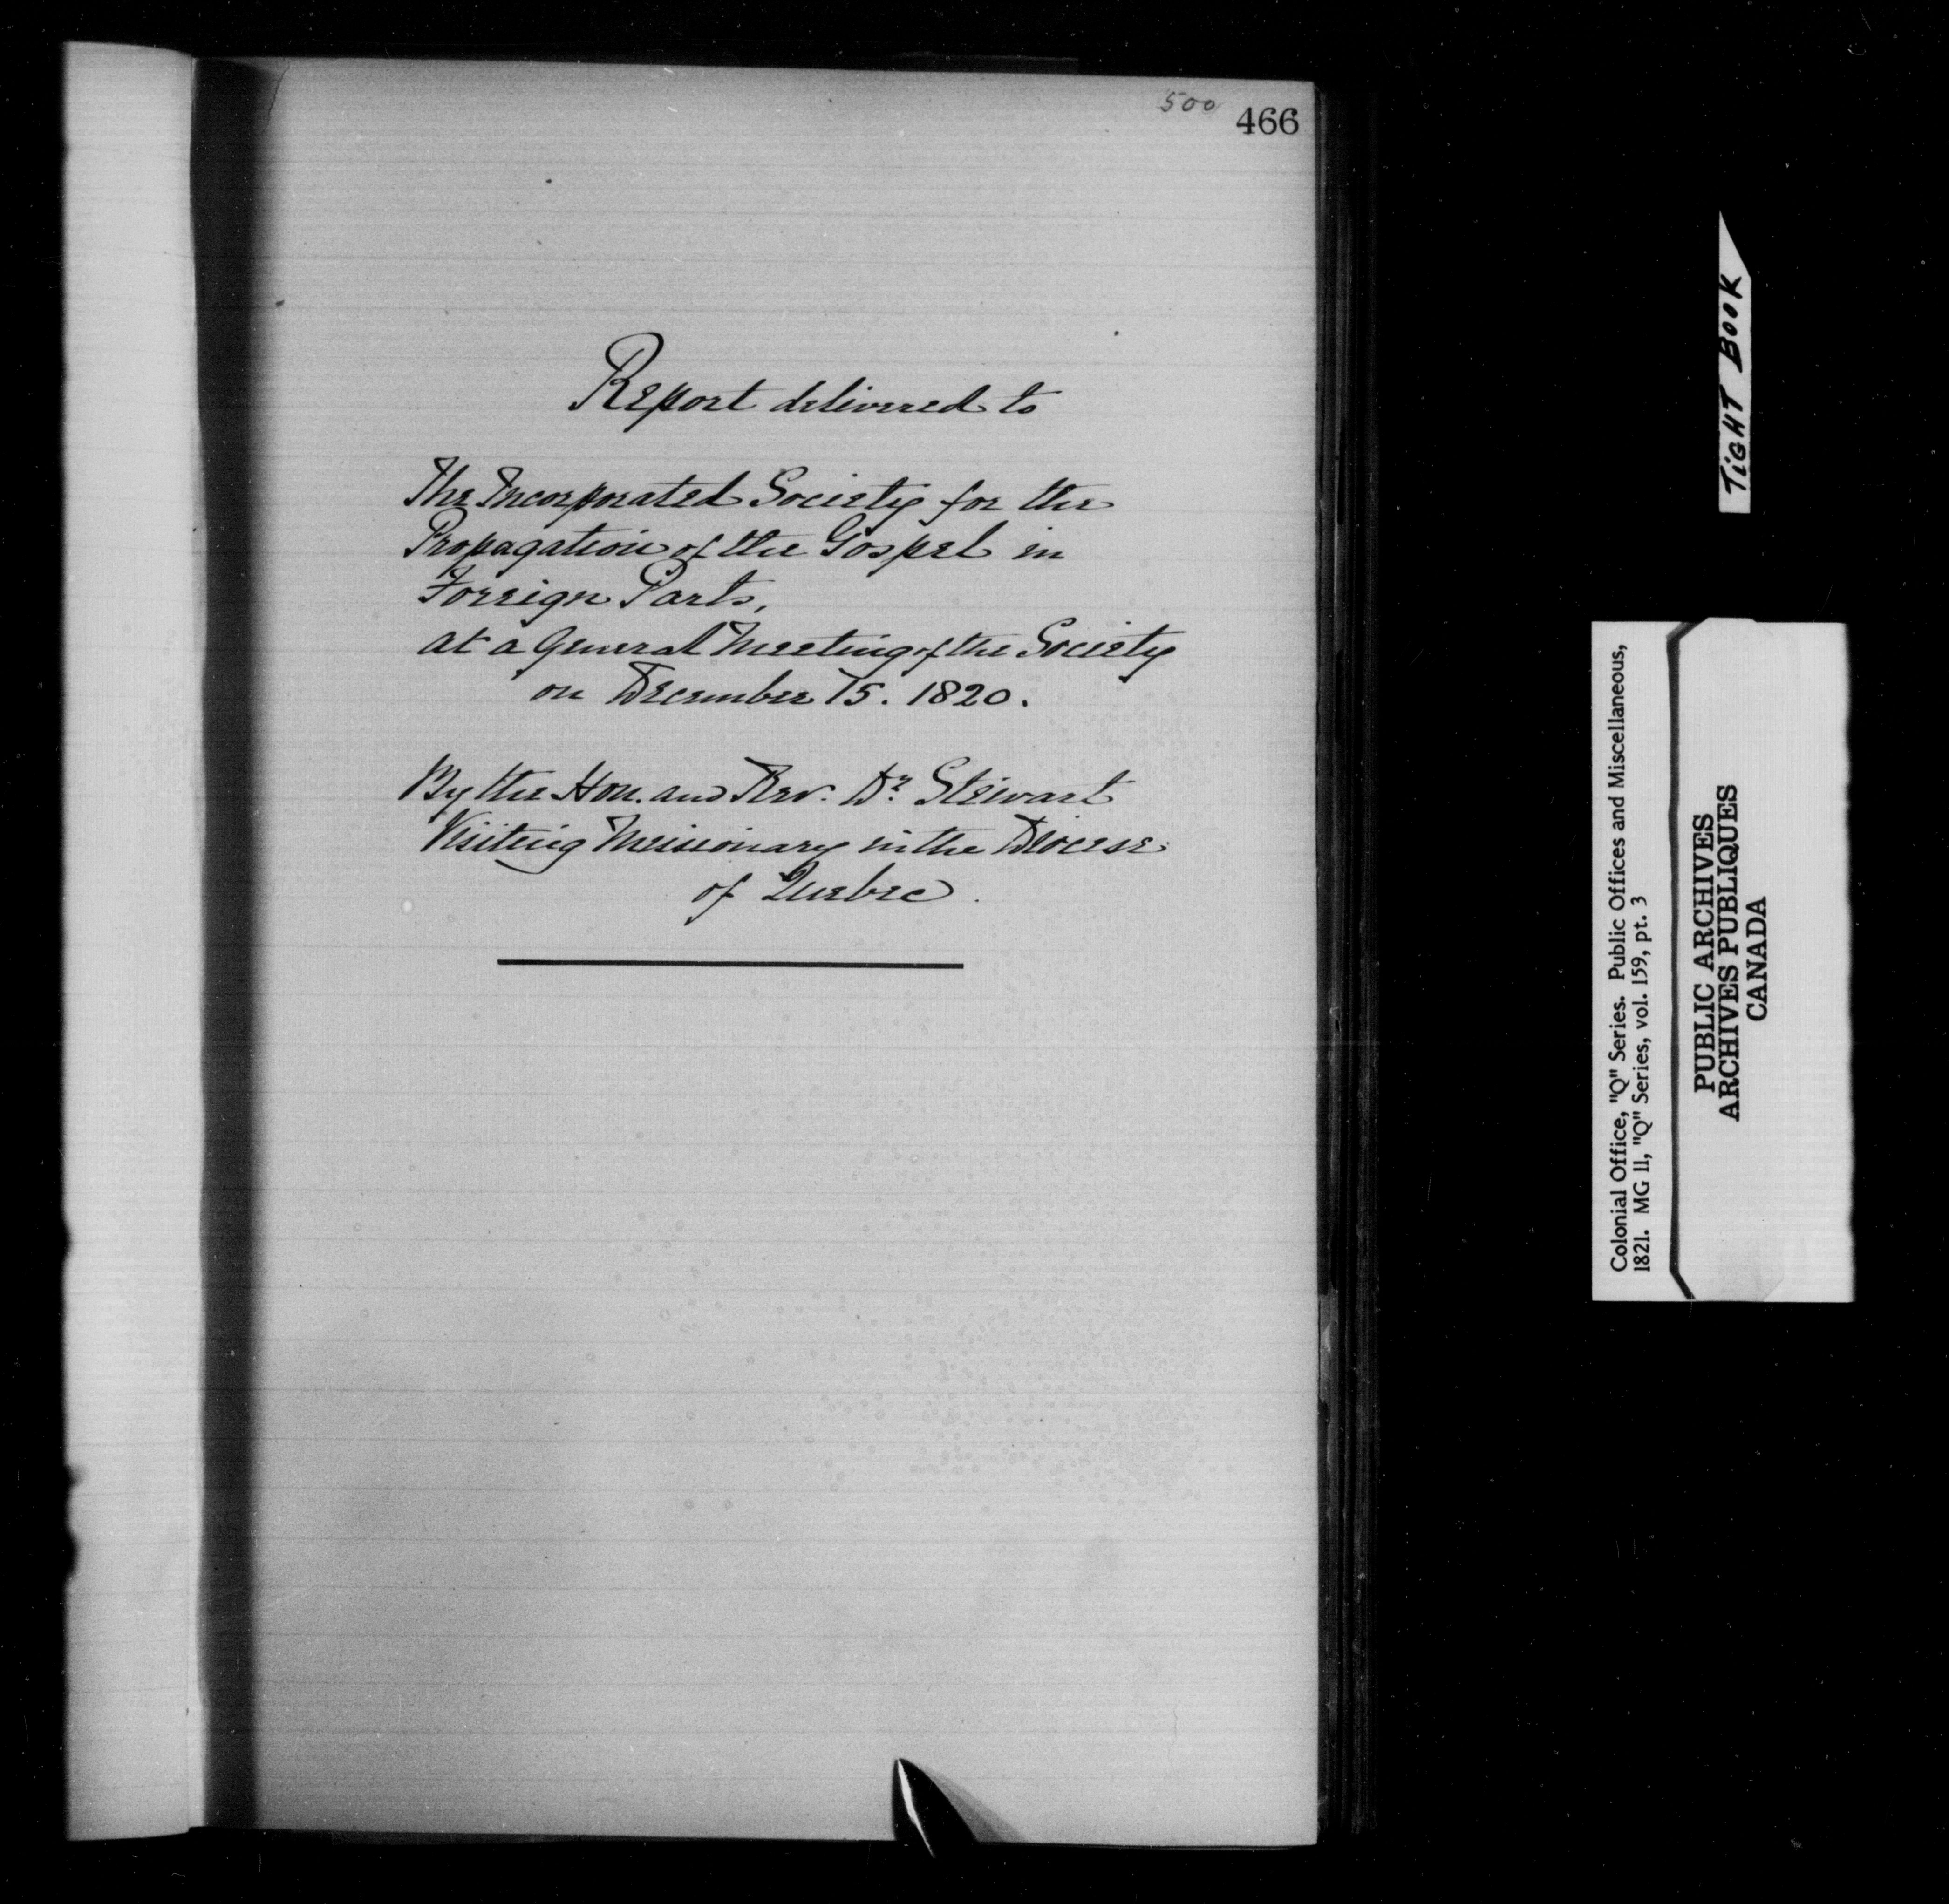 500
466
Report delivered to
The Incorporated Society for the
Propagation of the Gospel in
Foreign Parts,
at a General Meeting of the Society
on December 15. 1820.
By the Hon. and Rev. Dr. Stewart
Visiting Missionary in the Diocese
of Quebec.
TIGHT BOOK
Colonial Office, "Q" Series. Public Offices and Miscellaneous,
1821. MG 11, "Q" Series, vol. 159, pt. 3
PUBLIC ARCHIVES
ARCHIVES PUBLIQUES
CANADA